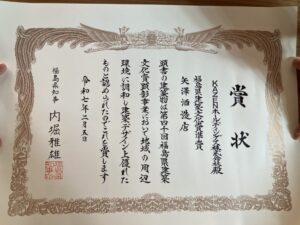 賞状
福島県建築文化賞準賞
矢澤酒造店
KAZENホールディングス株式会社殿
頭書の建築物は第四十回福島県建築
文化賞顕彰事業において地域の周辺
環境に調和し建築デザイン上優れた
ものと認められたのでこれを賞します
令和七年二月五日
福島県知事 内堀雅雄